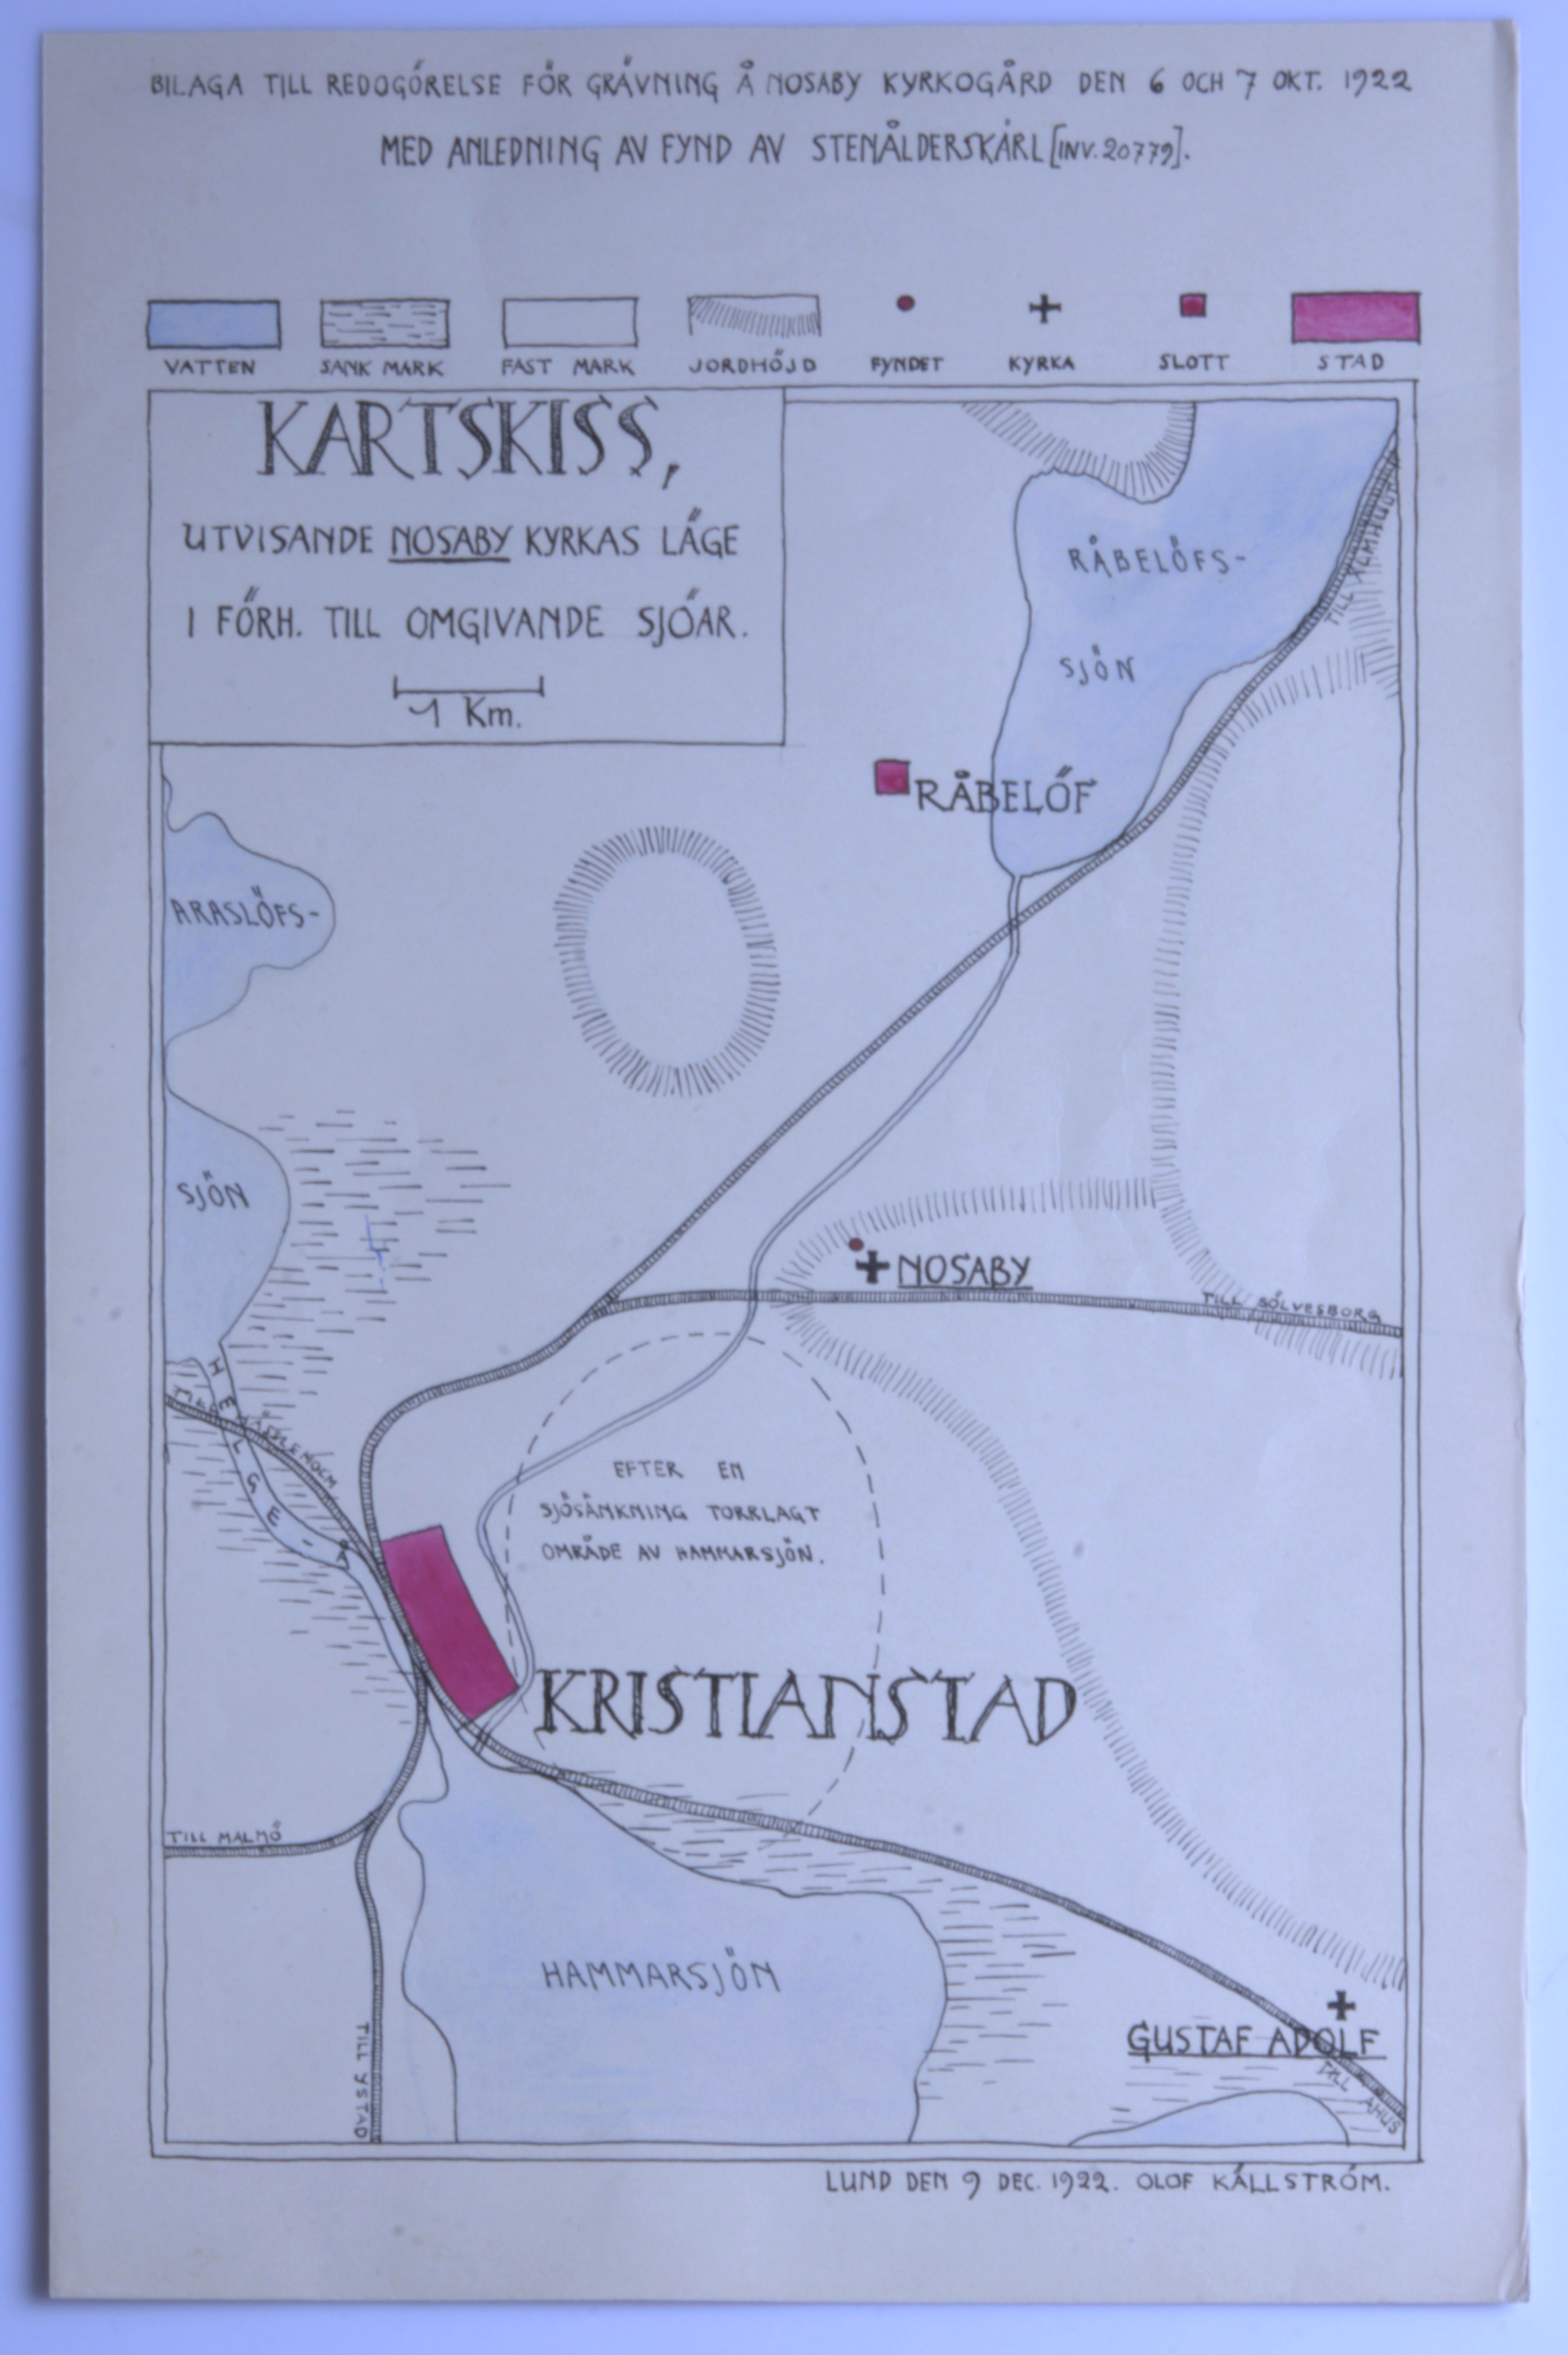 BILAGA TILL REDOGÖRELSE FÖR GRÄVNING Å NOSABY KYRKOGÅRD DEN 6 OCH 7 OKT. 1922
MED ANLEDNING AV FYND AV STENÅLDERSKÄRL [INV. 20779].
VATTEN SANK MARK FAST MARK JORDHÖJD FYNDET KYRKA SLOTT STAD
KARTSKISS,
UTVISANDE NOSABY KYRKAS LÄGE
I FÖRH. TILL OMGIVANDE SJÖAR.
1 Km.
RÅBELÖFS-
SJÖN
TILL ÄLMHULT
RÅBELÖF
ARASLÖFS-
SJÖN
NOSABY
TILL SÖLVESBORG
HELGE-Å
TILL HÄSSLEHOLM
EFTER EN
SJÖSÄNKNING TORRLAGT
OMRÅDE AV HAMMARSJÖN.
KRISTIANSTAD
TILL MALMÖ
HAMMARSJÖN
TILL YSTAD
GUSTAF ADOLF
TILL ÅHUS
LUND DEN 9 DEC. 1922. OLOF KÄLLSTRÖM.